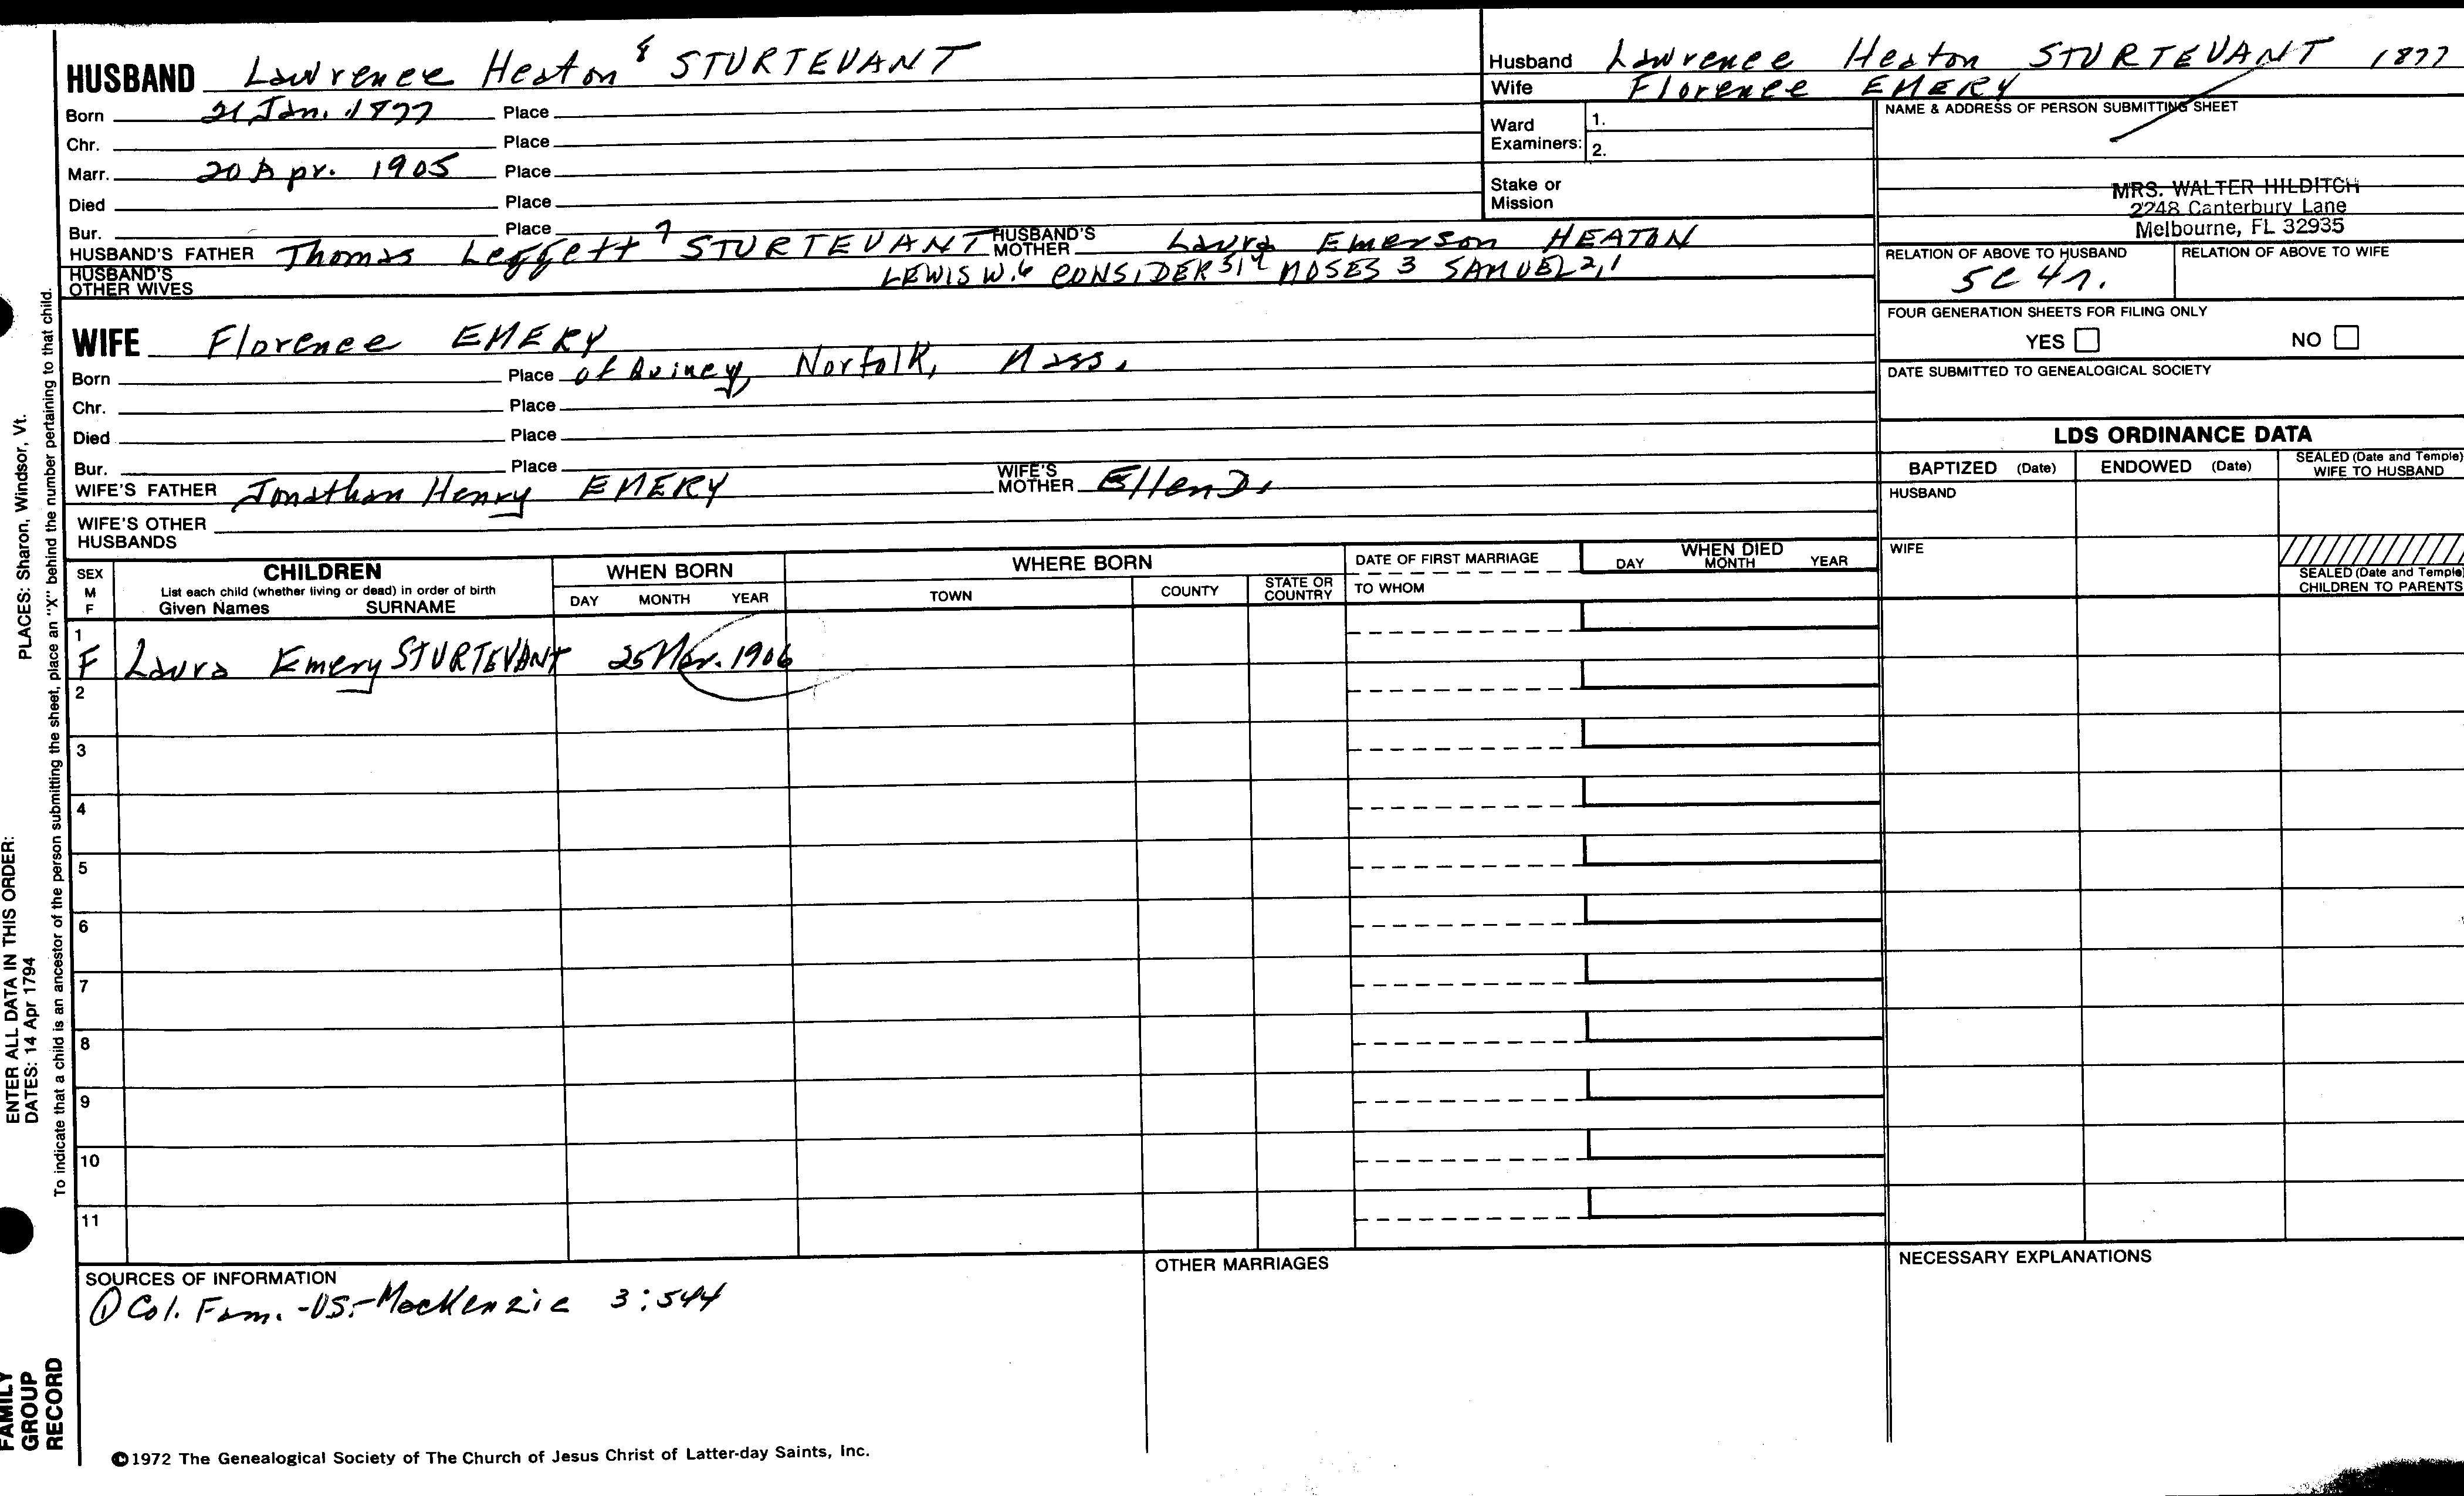 HUSBAND Lawrence Heaton 8 STURTEVANT
Born 21 Jan. 1877 Place
Chr. Place
Marr. 20 Apr. 1905 Place
Died Place
Bur. Place
HUSBAND'S FATHER Thomas Leggett 7 STURTEVANT HUSBAND'S MOTHER Laura Emerson HEATON
HUSBAND'S OTHER WIVES LEWIS W. 6 CONSIDER 5,4 MOSES 3 SAMUEL 2,1
WIFE Florence EMERY
Born Place of Quincy, Norfolk, Mass.
Chr. Place
Died Place
Bur. Place
WIFE'S FATHER Jonathan Henry EMERY WIFE'S MOTHER Ellen D.
WIFE'S OTHER HUSBANDS
Husband Lawrence Heaton STURTEVANT 1877
Wife Florence EMERY
Ward Examiners: 1.
2.
Stake or Mission
NAME & ADDRESS OF PERSON SUBMITTING SHEET
MRS. WALTER HILDITCH
2248 Canterbury Lane
Melbourne, FL 32935
RELATION OF ABOVE TO HUSBAND RELATION OF ABOVE TO WIFE
5C 4r.
FOUR GENERATION SHEETS FOR FILING ONLY
YES NO
DATE SUBMITTED TO GENEALOGICAL SOCIETY
LDS ORDINANCE DATA
BAPTIZED (Date) ENDOWED (Date) SEALED (Date and Temple) WIFE TO HUSBAND
HUSBAND
WIFE
SEALED (Date and Temple) CHILDREN TO PARENTS
SEX M F
CHILDREN
List each child (whether living or dead) in order of birth
Given Names SURNAME
WHEN BORN
DAY MONTH YEAR
WHERE BORN
TOWN COUNTY STATE OR COUNTRY
DATE OF FIRST MARRIAGE
TO WHOM
WHEN DIED
DAY MONTH YEAR
1
F Laura Emery STURTEVANT 25 Mar. 1906
2
3
4
5
6
7
8
9
10
11
SOURCES OF INFORMATION
① Col. Fam. -US.- MacKenzie 3:544
OTHER MARRIAGES
NECESSARY EXPLANATIONS
©1972 The Genealogical Society of The Church of Jesus Christ of Latter-day Saints, Inc.
FAMILY GROUP RECORD
ENTER ALL DATA IN THIS ORDER:
DATES: 14 Apr 1794 PLACES: Sharon, Windsor, Vt.
To indicate that a child is an ancestor of the person submitting the sheet, place an "X" behind the number pertaining to that child.